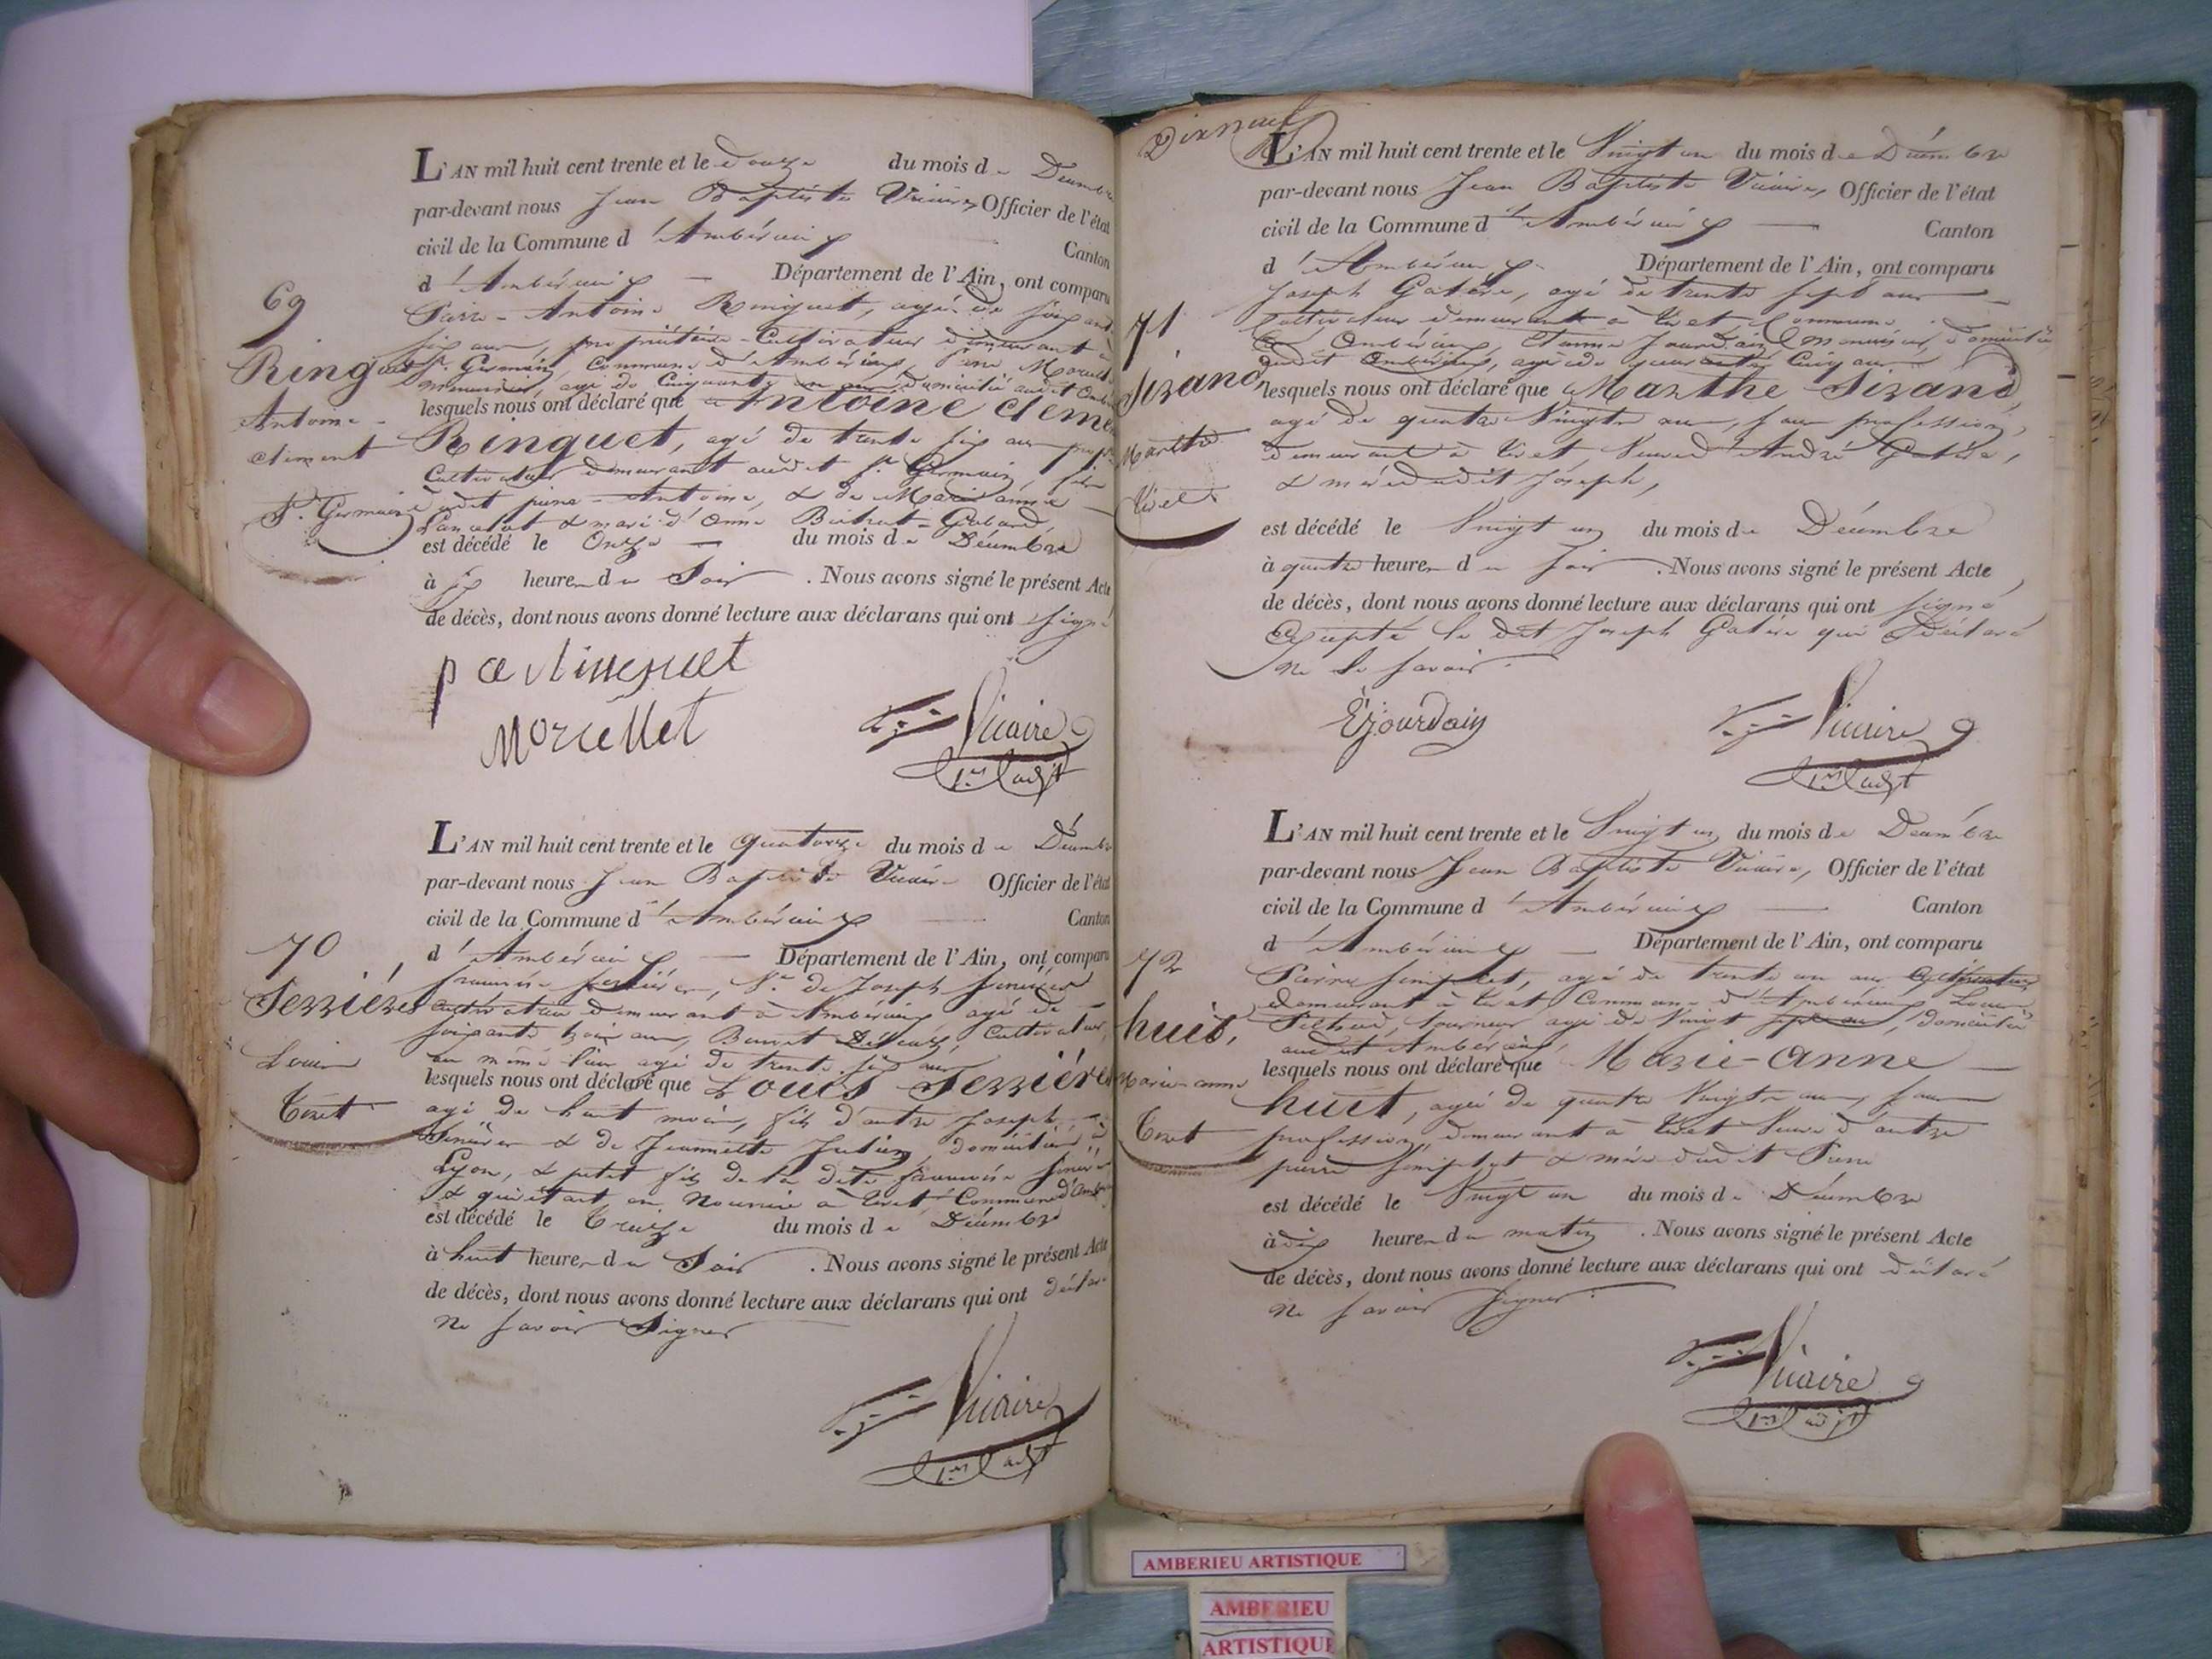 L'AN mil huit cent trente et le douze du mois de Décembre
par-devant nous Jean Baptiste Vicaire, Officier de l'état
civil de la Commune d'Ambérieux Canton
d'Ambérieux Département de l'Ain, ont comparu
69
Pierre-Antoine Ringuet, agé de soixante
six ans, propriétaire-Cultivateur demeurant à
St. Germain, Commune d'Ambérieux,
agé de Cinquante un ans domicilié audit
Ringuet
Antoine-
clément
St. Germain
lesquels nous ont déclaré que Antoine cléme
Ringuet, agé de trente six ans
Cultivateur demeurant audit St. Germain, fils
dudit pierre-Antoine, & de Marianne
& mari d'Anne
est décédé le Onze du mois de Décembre
à six heures du Soir. Nous avons signé le présent Acte
de décès, dont nous avons donné lecture aux déclarans qui ont signé
p a Ringuet
Morcellet
Vicaire
1er adjt
L'AN mil huit cent trente et le quatorze du mois de Décembre
par-devant nous Jean Baptiste Vicaire Officier de l'état
civil de la Commune d'Ambérieux Canton
d'Ambérieux Département de l'Ain, ont comparu
70
de Joseph
demeurant à Ambérieux agé de
soixante trois ans, Benoit Cultivateur,
au même lieu agé de trente six ans
Ferrières
Louis
Tiret
lesquels nous ont déclaré que Louis Ferrières
agé de huit mois, fils d'autre Joseph
& de Jeannette domiciliés à
Lyon, & petit fils de la dite
& qui était en Nourrice à Tiret Commune d'Amb
est décédé le Treize du mois de Décembre
à huit heures du Soir. Nous avons signé le présent Acte
de décès, dont nous avons donné lecture aux déclarans qui ont déclaré
ne savoir Signer
Vicaire
1er adjt
Dixneuf
L'AN mil huit cent trente et le Vingt un du mois de Décembre
par-devant nous Jean Baptiste Vicaire, Officier de l'état
civil de la Commune d'Ambérieux Canton
d'Ambérieux Département de l'Ain, ont comparu
71
Joseph Gatère, agé de trente sept ans
Cultivateur demeurant à Tiret, Commune
Ambérieux, Etienne Jourdain, domicilié
audit Ambérieux, agé de quarante Cinq ans
Sirand
Marthe
Tiret
lesquels nous ont déclaré que Marthe Sirand,
agé de quatre Vingts ans, sans profession,
demeurant à Tiret, Veuve d'André Gatère,
& mère dudit Joseph,
est décédé le Vingt un du mois de Décembre
à quatre heures du soir. Nous avons signé le présent Acte
de décès, dont nous avons donné lecture aux déclarans qui ont signé
Excepté le dit Joseph Gatère qui a Déclaré
ne le savoir.
E jourdain
Vicaire
1er adjt
L'AN mil huit cent trente et le Vingt un du mois de Décembre
par-devant nous Jean Baptiste Vicaire, Officier de l'état
civil de la Commune d'Ambérieux Canton
d'Ambérieux Département de l'Ain, ont comparu
72
Pierre Simplet, agé de trente un ans Cultivateur
demeurant à Tiret Commune d'Ambérieux, Louis
agé de Vingt sept ans, domicilié
audit Ambérieux,
huit,
Marie-anne
Tiret
lesquels nous ont déclaré que Marie-Anne
huit, agée de quatre Vingts ans, sans
profession, demeurant à Tiret Veuve d'autre
pierre Simplet & mère dudit Pierre
est décédé le Vingt un du mois de Décembre
à dix heures du matin. Nous avons signé le présent Acte
de décès, dont nous avons donné lecture aux déclarans qui ont déclaré
ne savoir signer.
Vicaire
1er adjt
AMBERIEU ARTISTIQUE
AMBERIEU
ARTISTIQUE